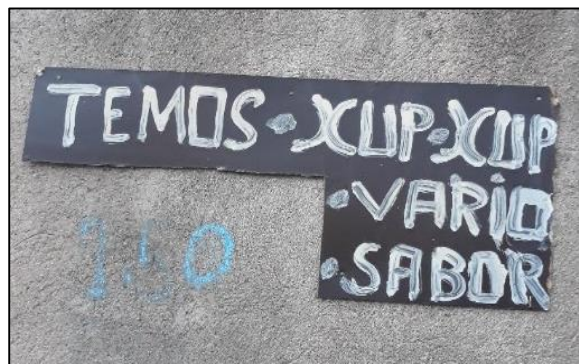 TEMOS · XUP · XUP
· VARIO
· SABOR
1,50